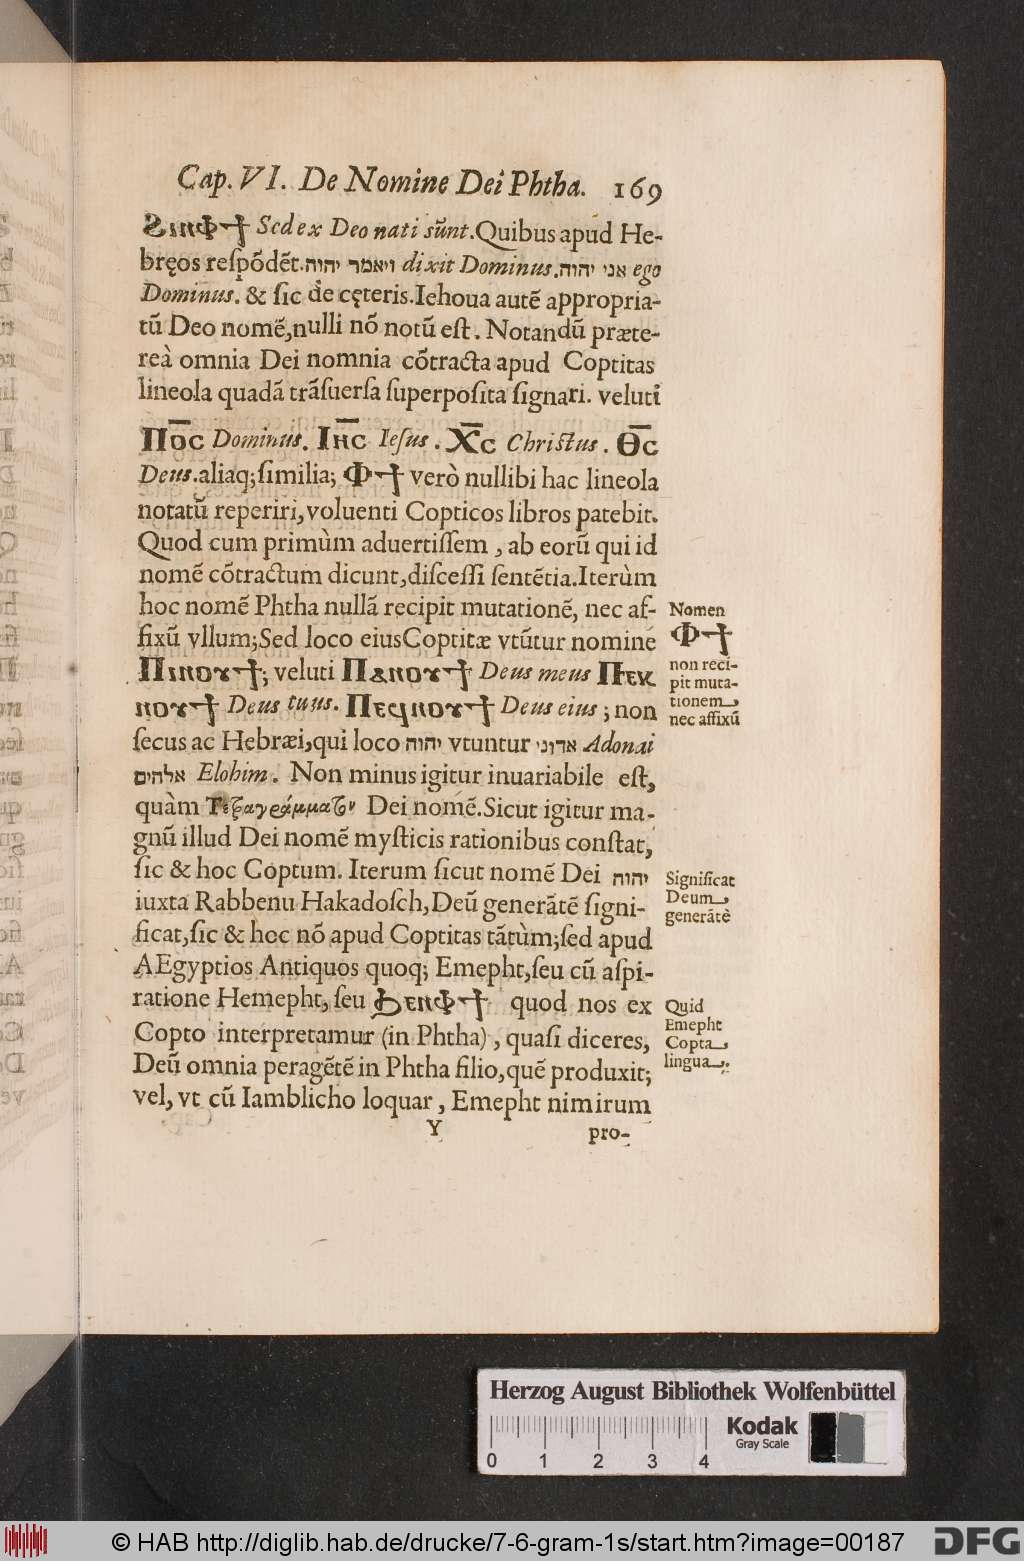 Cap. VI. De Nomine Dei Phtha. 169
Sed ex Deo nati sũnt. Quibus apud He-
bręos reſpõdẽt. ויאמר יהוה dixit Dominus. אני יהוה ego
Dominus. & ſic de cęteris. Iehoua autẽ appropria-
tũ Deo nomẽ, nulli nõ notũ eſt. Notandũ præte-
reà omnia Dei nomnia cõtracta apud Coptitas
lineola quadã trãſuerſa ſuperpoſita ſignari. veluti
Ⲡⲟ̅ⲥ Dominus. Ⲓⲏ̅ⲥ Ieſus. Ⲭ̅ⲥ Chriſtus. Ⲑ̅ⲥ
Deus. aliaq; ſimilia; Ⲫϯ verò nullibi hac lineola
notatũ reperiri, voluenti Copticos libros patebit.
Quod cum primùm aduertiſſem, ab eorũ qui id
nomẽ cõtractum dicunt, diſceſſi ſentẽtia. Iterùm
hoc nomẽ Phtha nullã recipit mutationẽ, nec af-
fixũ vllum; Sed loco eius Coptitæ vtũtur nomine
Ⲡⲓⲛⲟⲩϯ; veluti Ⲡⲁⲛⲟⲩϯ Deus meus Ⲡⲉⲕ
ⲛⲟⲩϯ Deus tuus. Ⲡⲉϥⲛⲟⲩϯ Deus eius; non
ſecus ac Hebræi, qui loco יהוה vtuntur אדוני Adonai
אלהים Elohim. Non minus igitur inuariabile eſt,
quàm Τετραγράμματον Dei nomẽ. Sicut igitur ma-
gnũ illud Dei nomẽ myſticis rationibus conſtat,
ſic & hoc Coptum. Iterum ſicut nomẽ Dei יהוה
iuxta Rabbenu Hakadoſch, Deũ generãtẽ ſigni-
ficat, ſic & hoc nõ apud Coptitas tãtùm; ſed apud
AEgyptios Antiquos quoq; Emepht, ſeu cũ aſpi-
ratione Hemepht, ſeu Ϧⲉⲛⲫϯ quod nos ex
Copto interpretamur (in Phtha), quaſi diceres,
Deũ omnia peragẽtẽ in Phtha filio, quẽ produxit;
vel, vt cũ Iamblicho loquar, Emepht nimirum
Y pro-
Nomen
Ⲫϯ
non reci-
pit muta-
tionem,
nec affixũ
Significat
Deum,
generãtẽ
Quid
Emepht
Copta,
lingua.
Herzog August Bibliothek Wolfenbüttel
Kodak
Gray Scale
0 1 2 3 4
© HAB http://diglib.hab.de/drucke/7-6-gram-1s/start.htm?image=00187
DFG